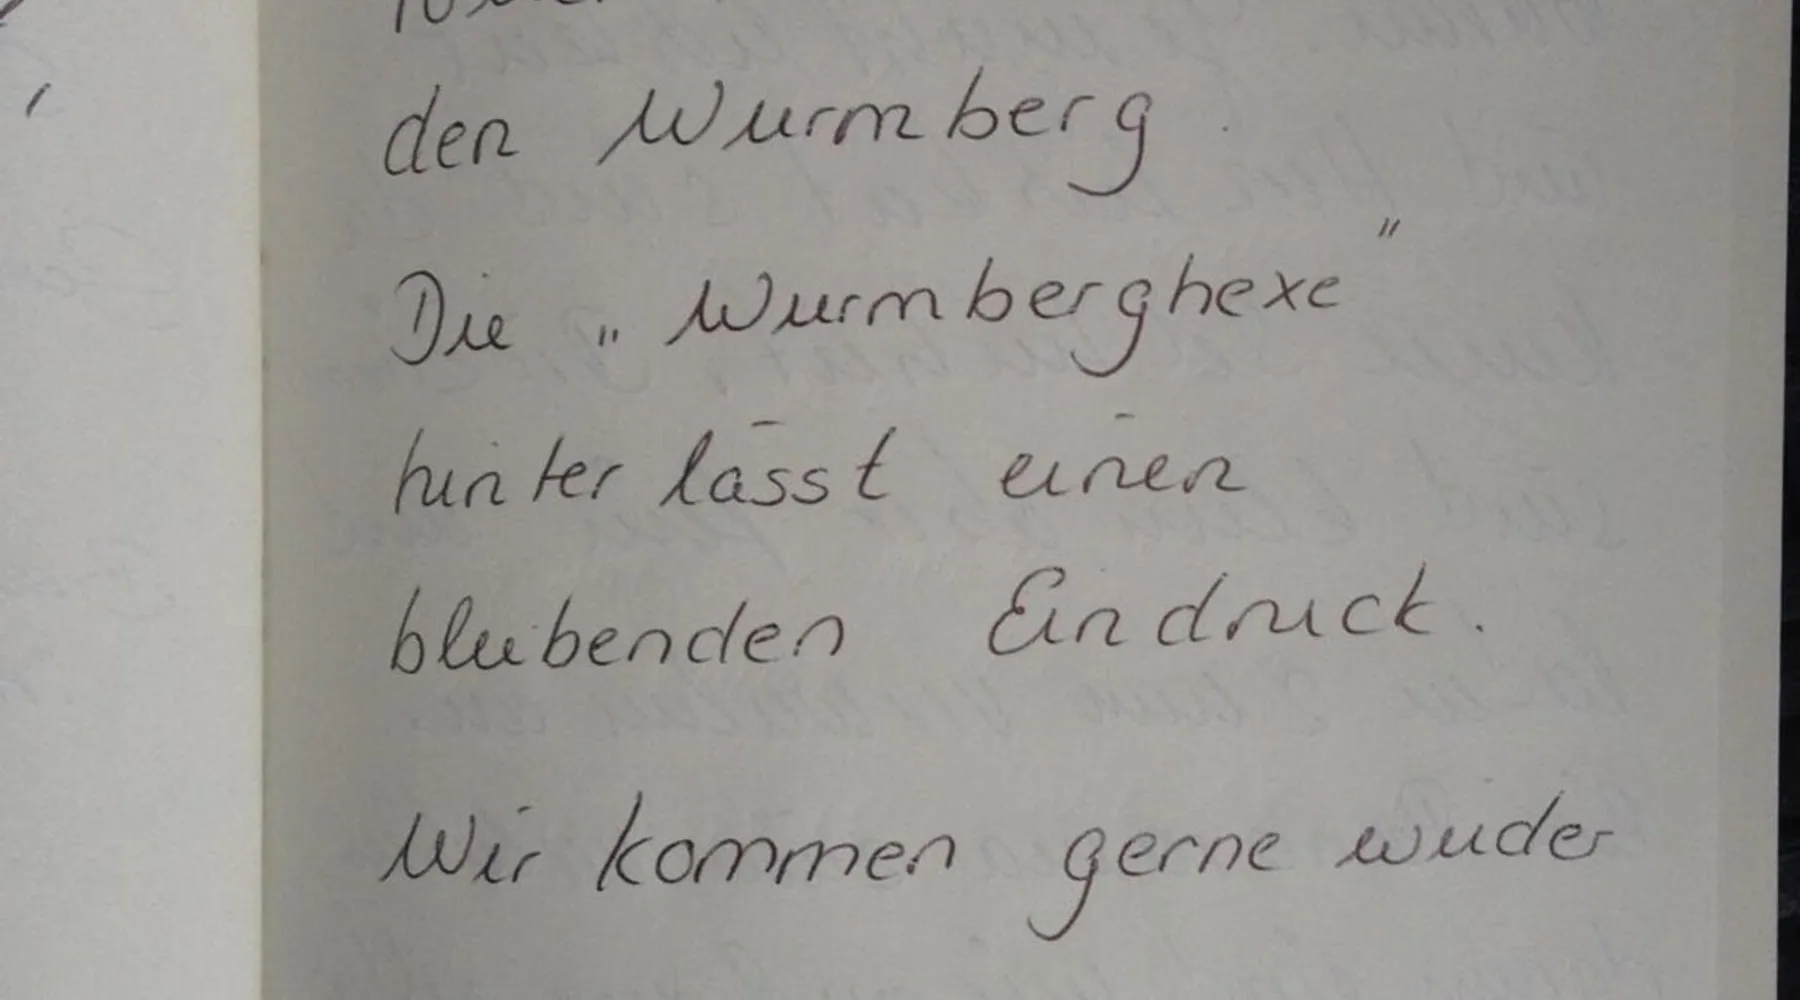 den Wurmberg.
Die „Wurmberghexe"
hinterlässt einen
bleibenden Eindruck.
Wir kommen gerne wieder